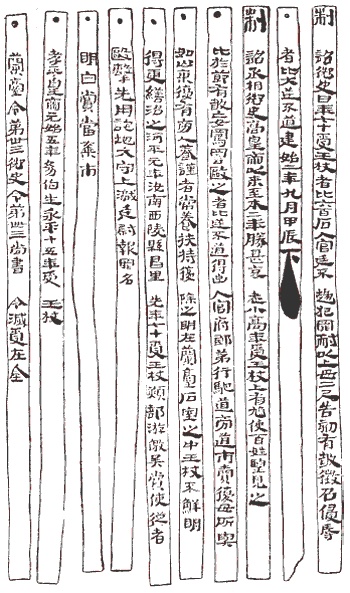 制 詔御史曰年七十受王杖者比六百石入官廷不趨犯罪耐以上毋二尺告劾有敢徵召侵辱
者比逆不道建始二年九月甲辰下
制 詔丞相御史高皇帝以來至本二年勝甚哀老小高年受王杖上有鳩使百姓望見之
比於節有敢妄罵詈毆之者比逆不道得出入官府郎第行馳道旁道市賣復毋所與
如山東復有旁人養謹者常養扶持復除之明在蘭臺石室之中王杖不鮮明
得更繕治之河平元年汝南西陵縣昌里先年七十受王杖熲部游徼吳賞使從者
毆擊先用詫地大守上讞廷尉報罪名
明白賞當棄市
孝平皇帝元始五年幼伯生永平十五年受王杖
蘭臺令第卅三御史令第卌三尚書令滅受在金